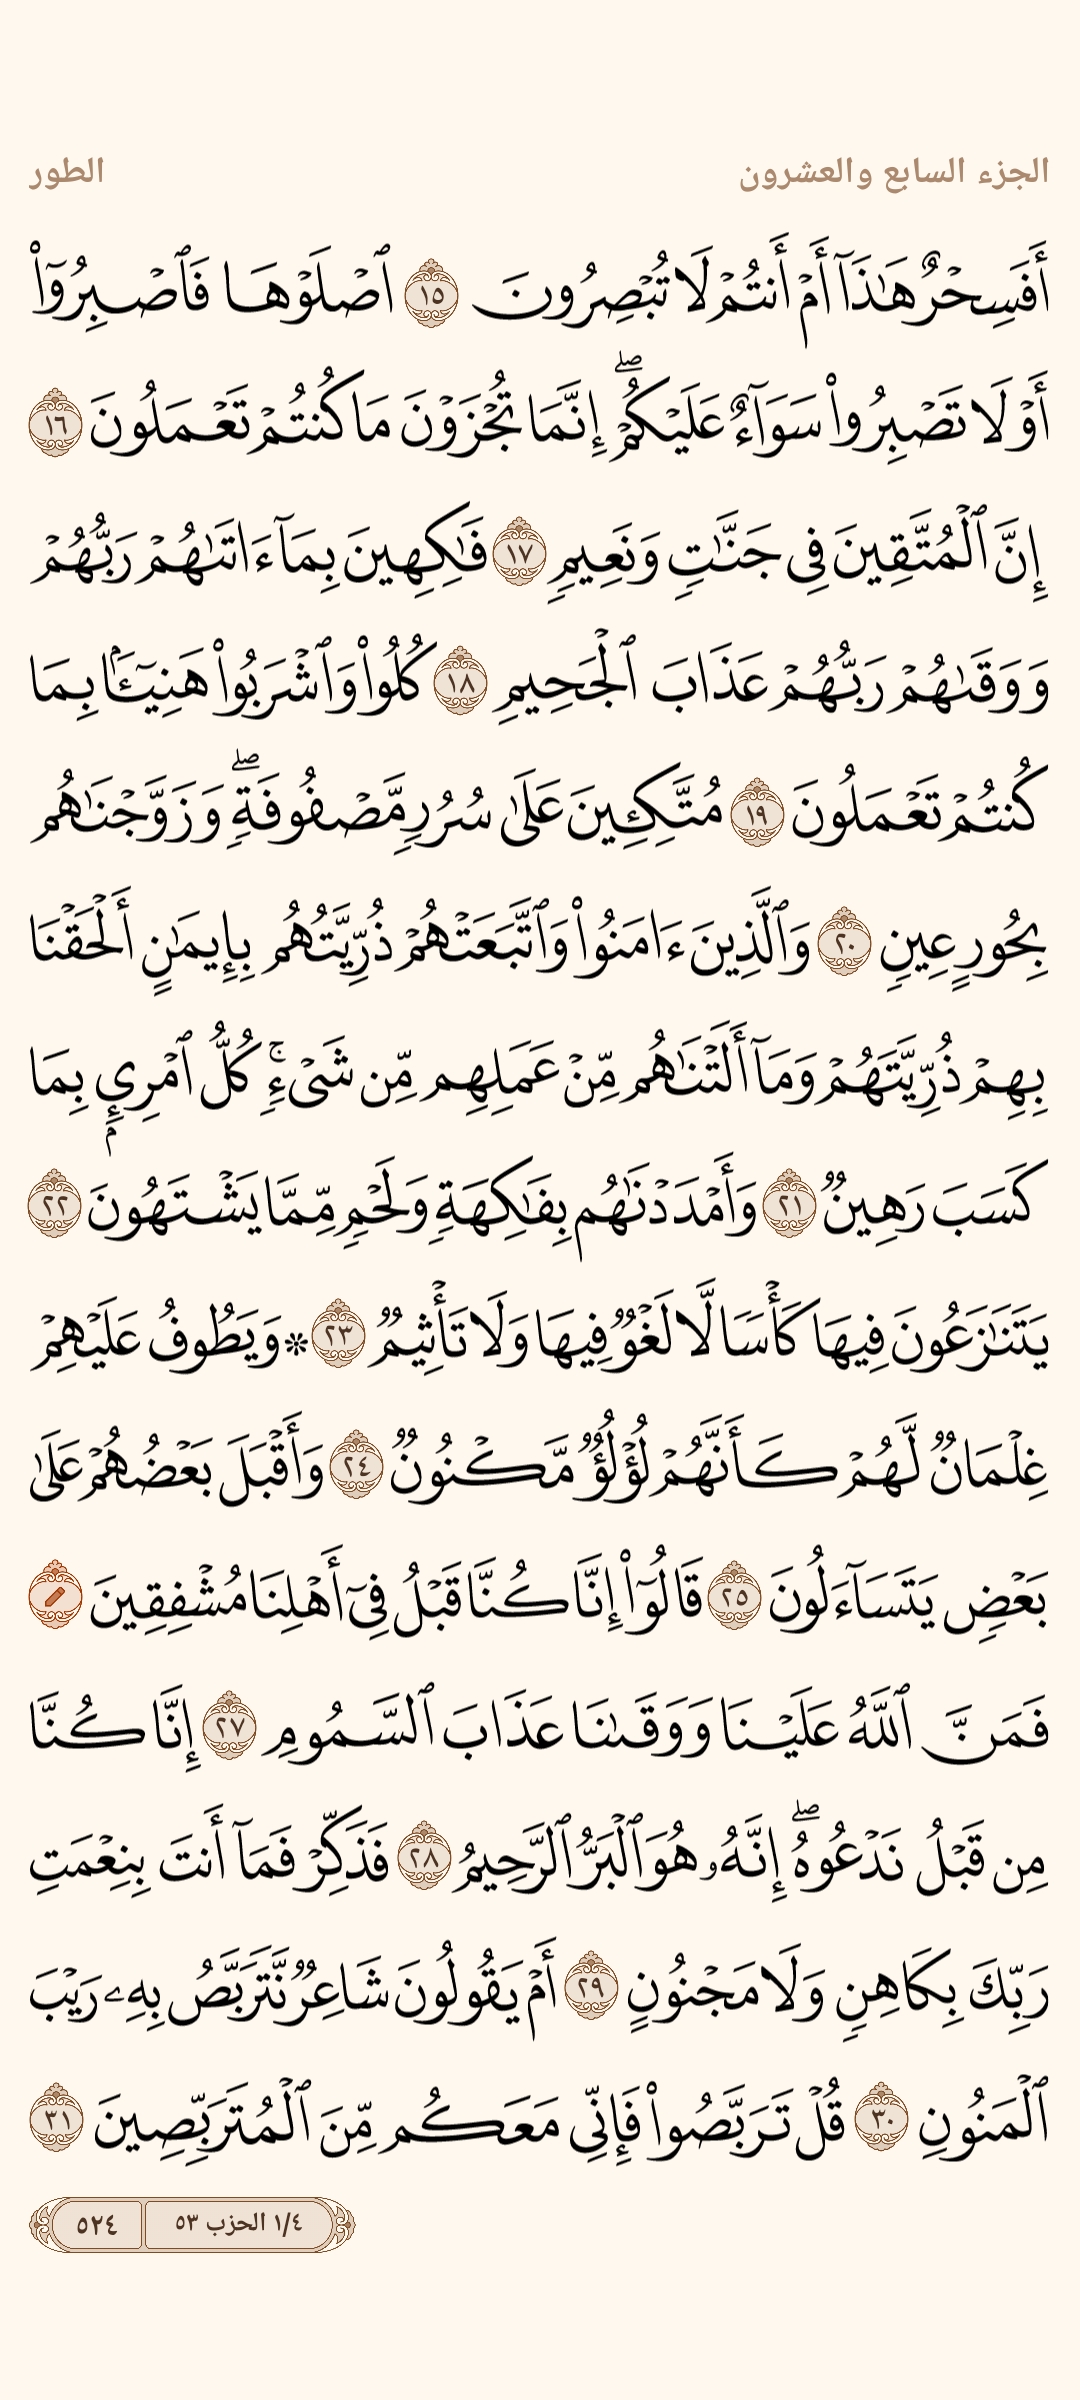 الجزء السابع والعشرون
الطور
أَفَسِحْرٌ هَٰذَآ أَمْ أَنتُمْ لَا تُبْصِرُونَ ١٥ ٱصْلَوْهَا فَٱصْبِرُوٓا۟
أَوْ لَا تَصْبِرُوا۟ سَوَآءٌ عَلَيْكُمْ ۖ إِنَّمَا تُجْزَوْنَ مَا كُنتُمْ تَعْمَلُونَ ١٦
إِنَّ ٱلْمُتَّقِينَ فِى جَنَّٰتٍ وَنَعِيمٍ ١٧ فَٰكِهِينَ بِمَآ ءَاتَىٰهُمْ رَبُّهُمْ
وَوَقَىٰهُمْ رَبُّهُمْ عَذَابَ ٱلْجَحِيمِ ١٨ كُلُوا۟ وَٱشْرَبُوا۟ هَنِيٓـًٔۢا بِمَا
كُنتُمْ تَعْمَلُونَ ١٩ مُتَّكِـِٔينَ عَلَىٰ سُرُرٍ مَّصْفُوفَةٍ ۖ وَزَوَّجْنَٰهُم
بِحُورٍ عِينٍ ٢٠ وَٱلَّذِينَ ءَامَنُوا۟ وَٱتَّبَعَتْهُمْ ذُرِّيَّتُهُم بِإِيمَٰنٍ أَلْحَقْنَا
بِهِمْ ذُرِّيَّتَهُمْ وَمَآ أَلَتْنَٰهُم مِّنْ عَمَلِهِم مِّن شَىْءٍ ۚ كُلُّ ٱمْرِئٍۭ بِمَا
كَسَبَ رَهِينٌ ٢١ وَأَمْدَدْنَٰهُم بِفَٰكِهَةٍ وَلَحْمٍ مِّمَّا يَشْتَهُونَ ٢٢
يَتَنَٰزَعُونَ فِيهَا كَأْسًا لَّا لَغْوٌ فِيهَا وَلَا تَأْثِيمٌ ٢٣ * وَيَطُوفُ عَلَيْهِمْ
غِلْمَانٌ لَّهُمْ كَأَنَّهُمْ لُؤْلُؤٌ مَّكْنُونٌ ٢٤ وَأَقْبَلَ بَعْضُهُمْ عَلَىٰ
بَعْضٍ يَتَسَآءَلُونَ ٢٥ قَالُوٓا۟ إِنَّا كُنَّا قَبْلُ فِىٓ أَهْلِنَا مُشْفِقِينَ
فَمَنَّ ٱللَّهُ عَلَيْنَا وَوَقَىٰنَا عَذَابَ ٱلسَّمُومِ ٢٧ إِنَّا كُنَّا
مِن قَبْلُ نَدْعُوهُ ۖ إِنَّهُۥ هُوَ ٱلْبَرُّ ٱلرَّحِيمُ ٢٨ فَذَكِّرْ فَمَآ أَنتَ بِنِعْمَتِ
رَبِّكَ بِكَاهِنٍ وَلَا مَجْنُونٍ ٢٩ أَمْ يَقُولُونَ شَاعِرٌ نَّتَرَبَّصُ بِهِۦ رَيْبَ
ٱلْمَنُونِ ٣٠ قُلْ تَرَبَّصُوا۟ فَإِنِّى مَعَكُم مِّنَ ٱلْمُتَرَبِّصِينَ ٣١
١/٤ الحزب ٥٣
٥٢٤